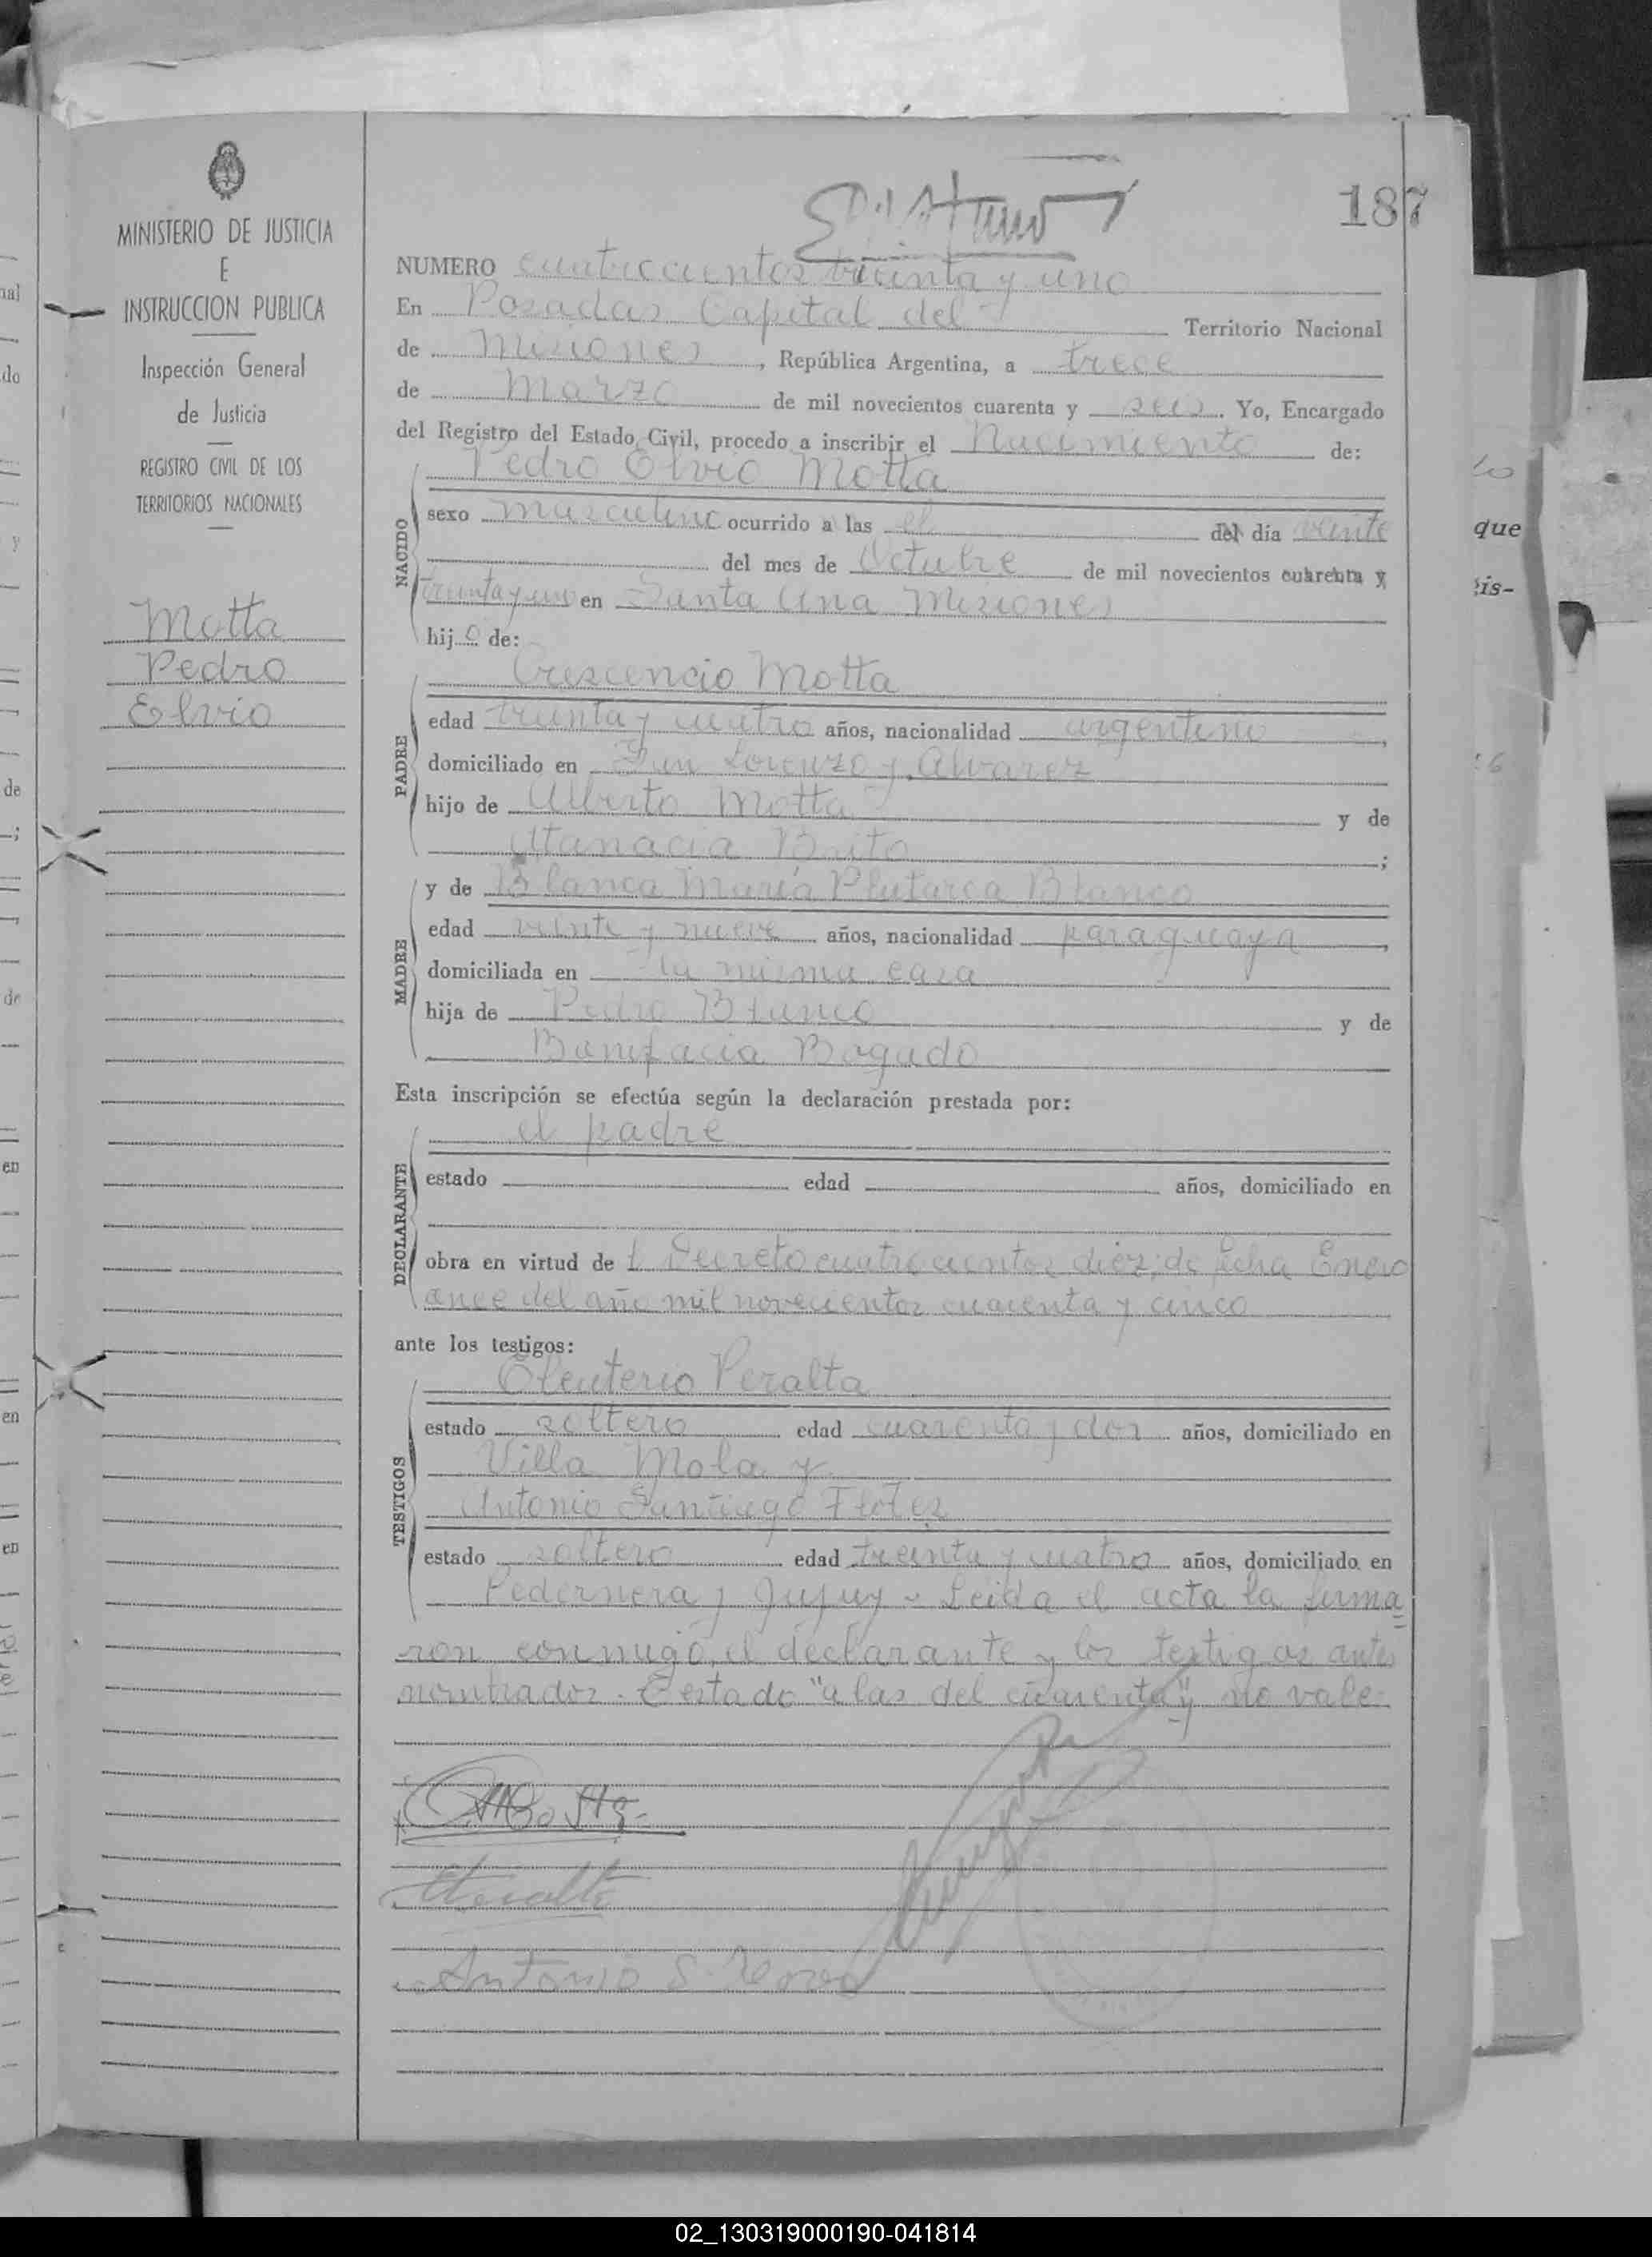 187
MINISTERIO DE JUSTICIA
E
INSTRUCCION PUBLICA
Inspección General
de Justicia
REGISTRO CIVIL DE LOS
TERRITORIOS NACIONALES
Motta
Pedro
Elvio
NUMERO cuatrocientos treinta y uno
En Posadas Capital del Territorio Nacional
de Misiones, República Argentina, a trece
de Marzo de mil novecientos cuarenta y seis. Yo, Encargado
del Registro del Estado Civil, procedo a inscribir el Nacimiento de:
Pedro Elvio Motta
NACIDO
sexo masculino ocurrido a las el del dia veinte
del mes de Octubre de mil novecientos cuarenta y
treinta y uno en Santa Ana Misiones
hijo de:
Crescencio Motta
PADRE
edad treinta y cuatro años, nacionalidad argentino,
domiciliado en San Lorenzo y Alvarez
hijo de Alberto Motta y de
Atanacia Brito;
MADRE
y de Blanca María Plutarca Blanco
edad veinte y nueve años, nacionalidad paraguaya,
domiciliada en la misma casa
hija de Pedro Blanco y de
Bonifacia Bogado
Esta inscripción se efectúa según la declaración prestada por:
el padre
DECLARANTE
estado edad años, domiciliado en
obra en virtud de l Decreto cuatrocientos diez; de fecha Enero
once del año mil novecientos cuarenta y cinco
ante los testigos:
Eleuterio Peralta
TESTIGOS
estado soltero edad cuarenta y dos años, domiciliado en
Villa Mola y
Antonio Santiago Flores
estado soltero edad treinta y cuatro años, domiciliado en
Pedernera y Jujuy - Leida el acta la firma=
ron conmigo, el declarante y los testigos antes
nombrados. Testado "a las del cuarenta y" no vale.
CMotta
Peralta
Antonio S.
que
is-
02_130319000190-041814